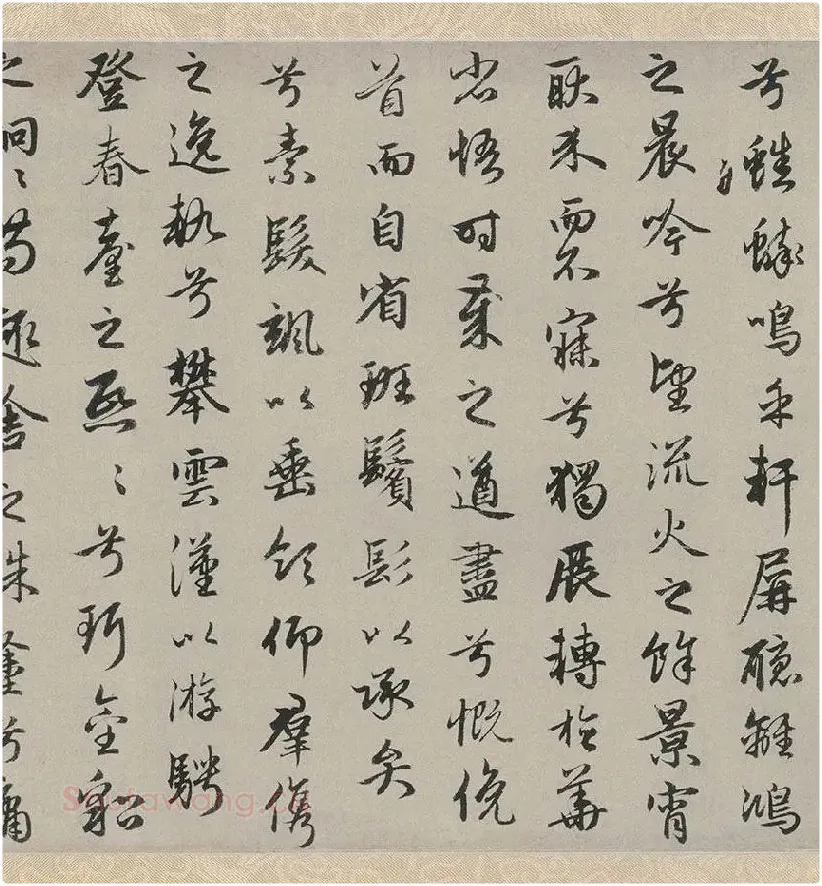 兮蟋蟀鳴乎軒屏聽離鴻
之晨吟兮望流火之餘景宵
耿介而不寐兮獨展轉於華
省悟時歲之遒盡兮慨俛
首而自省班鬢髟以承弁
兮素髮颯以垂領仰羣儁
之逸軌兮攀雲漢以游騁
登春臺之熙〻兮珥金貂
之炯〻苟趣舍之殊塗兮庸